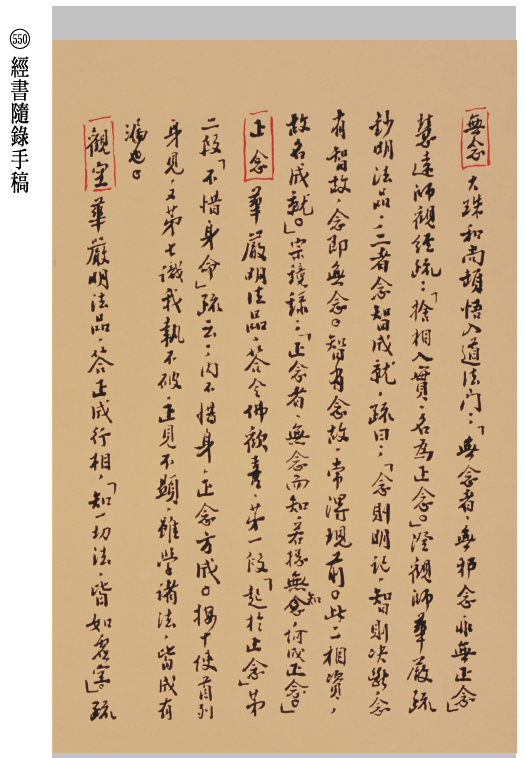 550 經書隨錄手稿
無念 大珠和尚頓悟入道法門：「無念者，無邪念非無正念」
慧遠師觀經疏：「捨相入實，名為正念。」澄觀師華嚴疏
鈔明法品，三者念智成就，疏曰：「念則明記，智則決斷，念
有智故，念即無念。智有念故，常得現前。此二相資，
故名成就。」宗鏡錄：「正念者，無念而知，若總無知，何成正念。」
正念 華嚴明法品，答令佛歡喜，第一段「起於正念」第
二段「不惜身命」疏云：內不惜身，正念方成。按十使首列
身見，又第七識我執不破，正見不顯，雖學諸法，皆成有
漏也。
觀空 華嚴明法品，答正成行相，「知一切法，皆如虛空」。疏